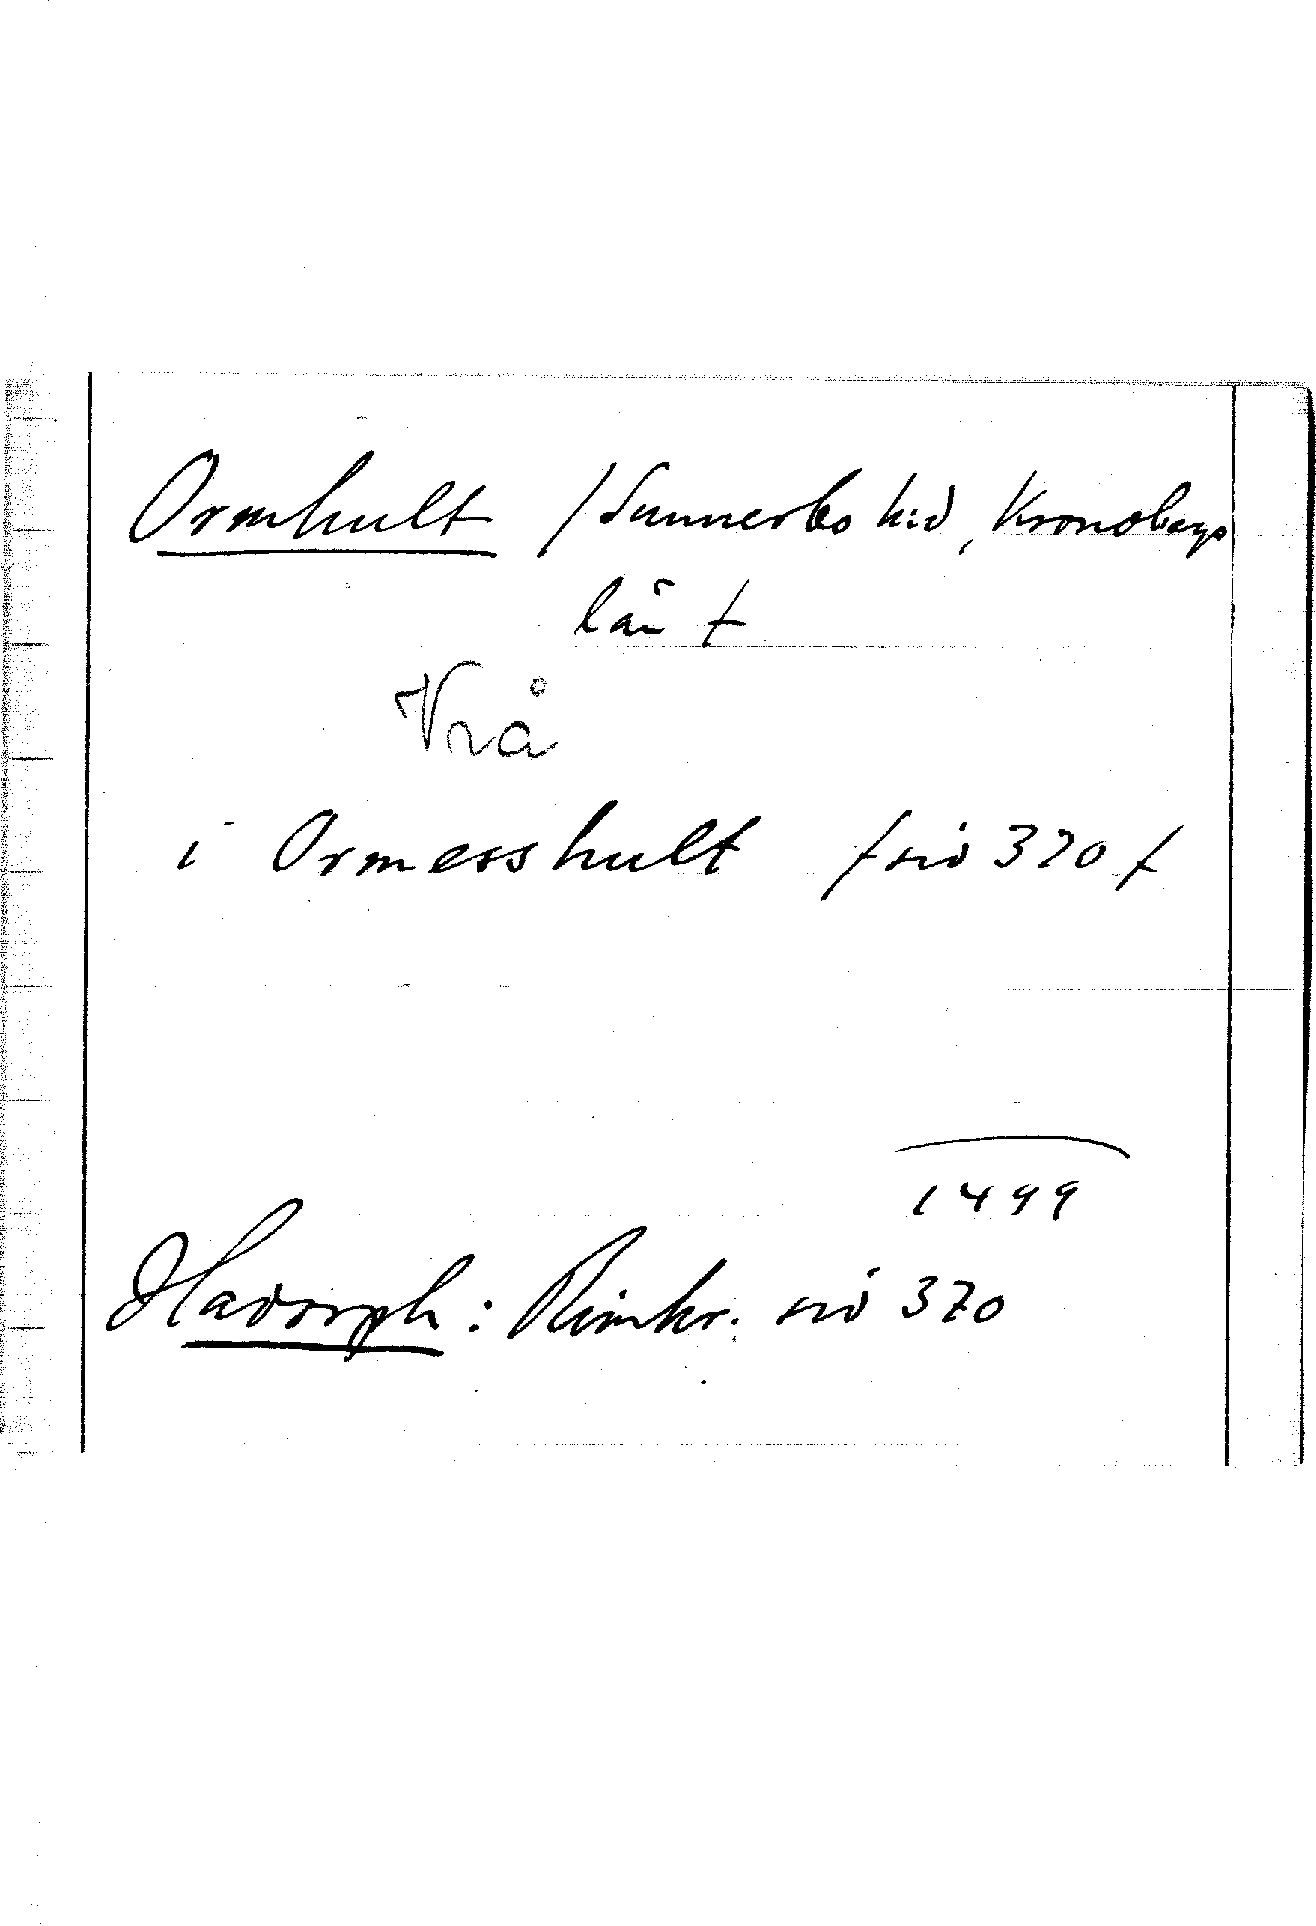 Ormhult /Sunnerbo h:d, Kronobergs
län/
Vrå
i Ormesshult /sid 370/
1499
Hadorph: Rimkr. sid 370